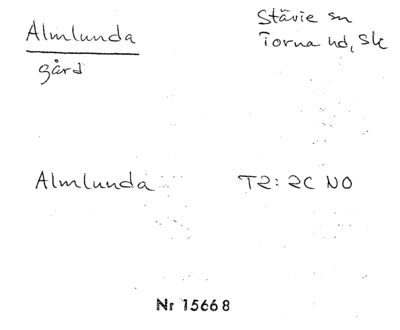 Almlunda
gård
Stävie sn
Torna hd, Sk
Almlunda T2: 2C NO
Nr 15668